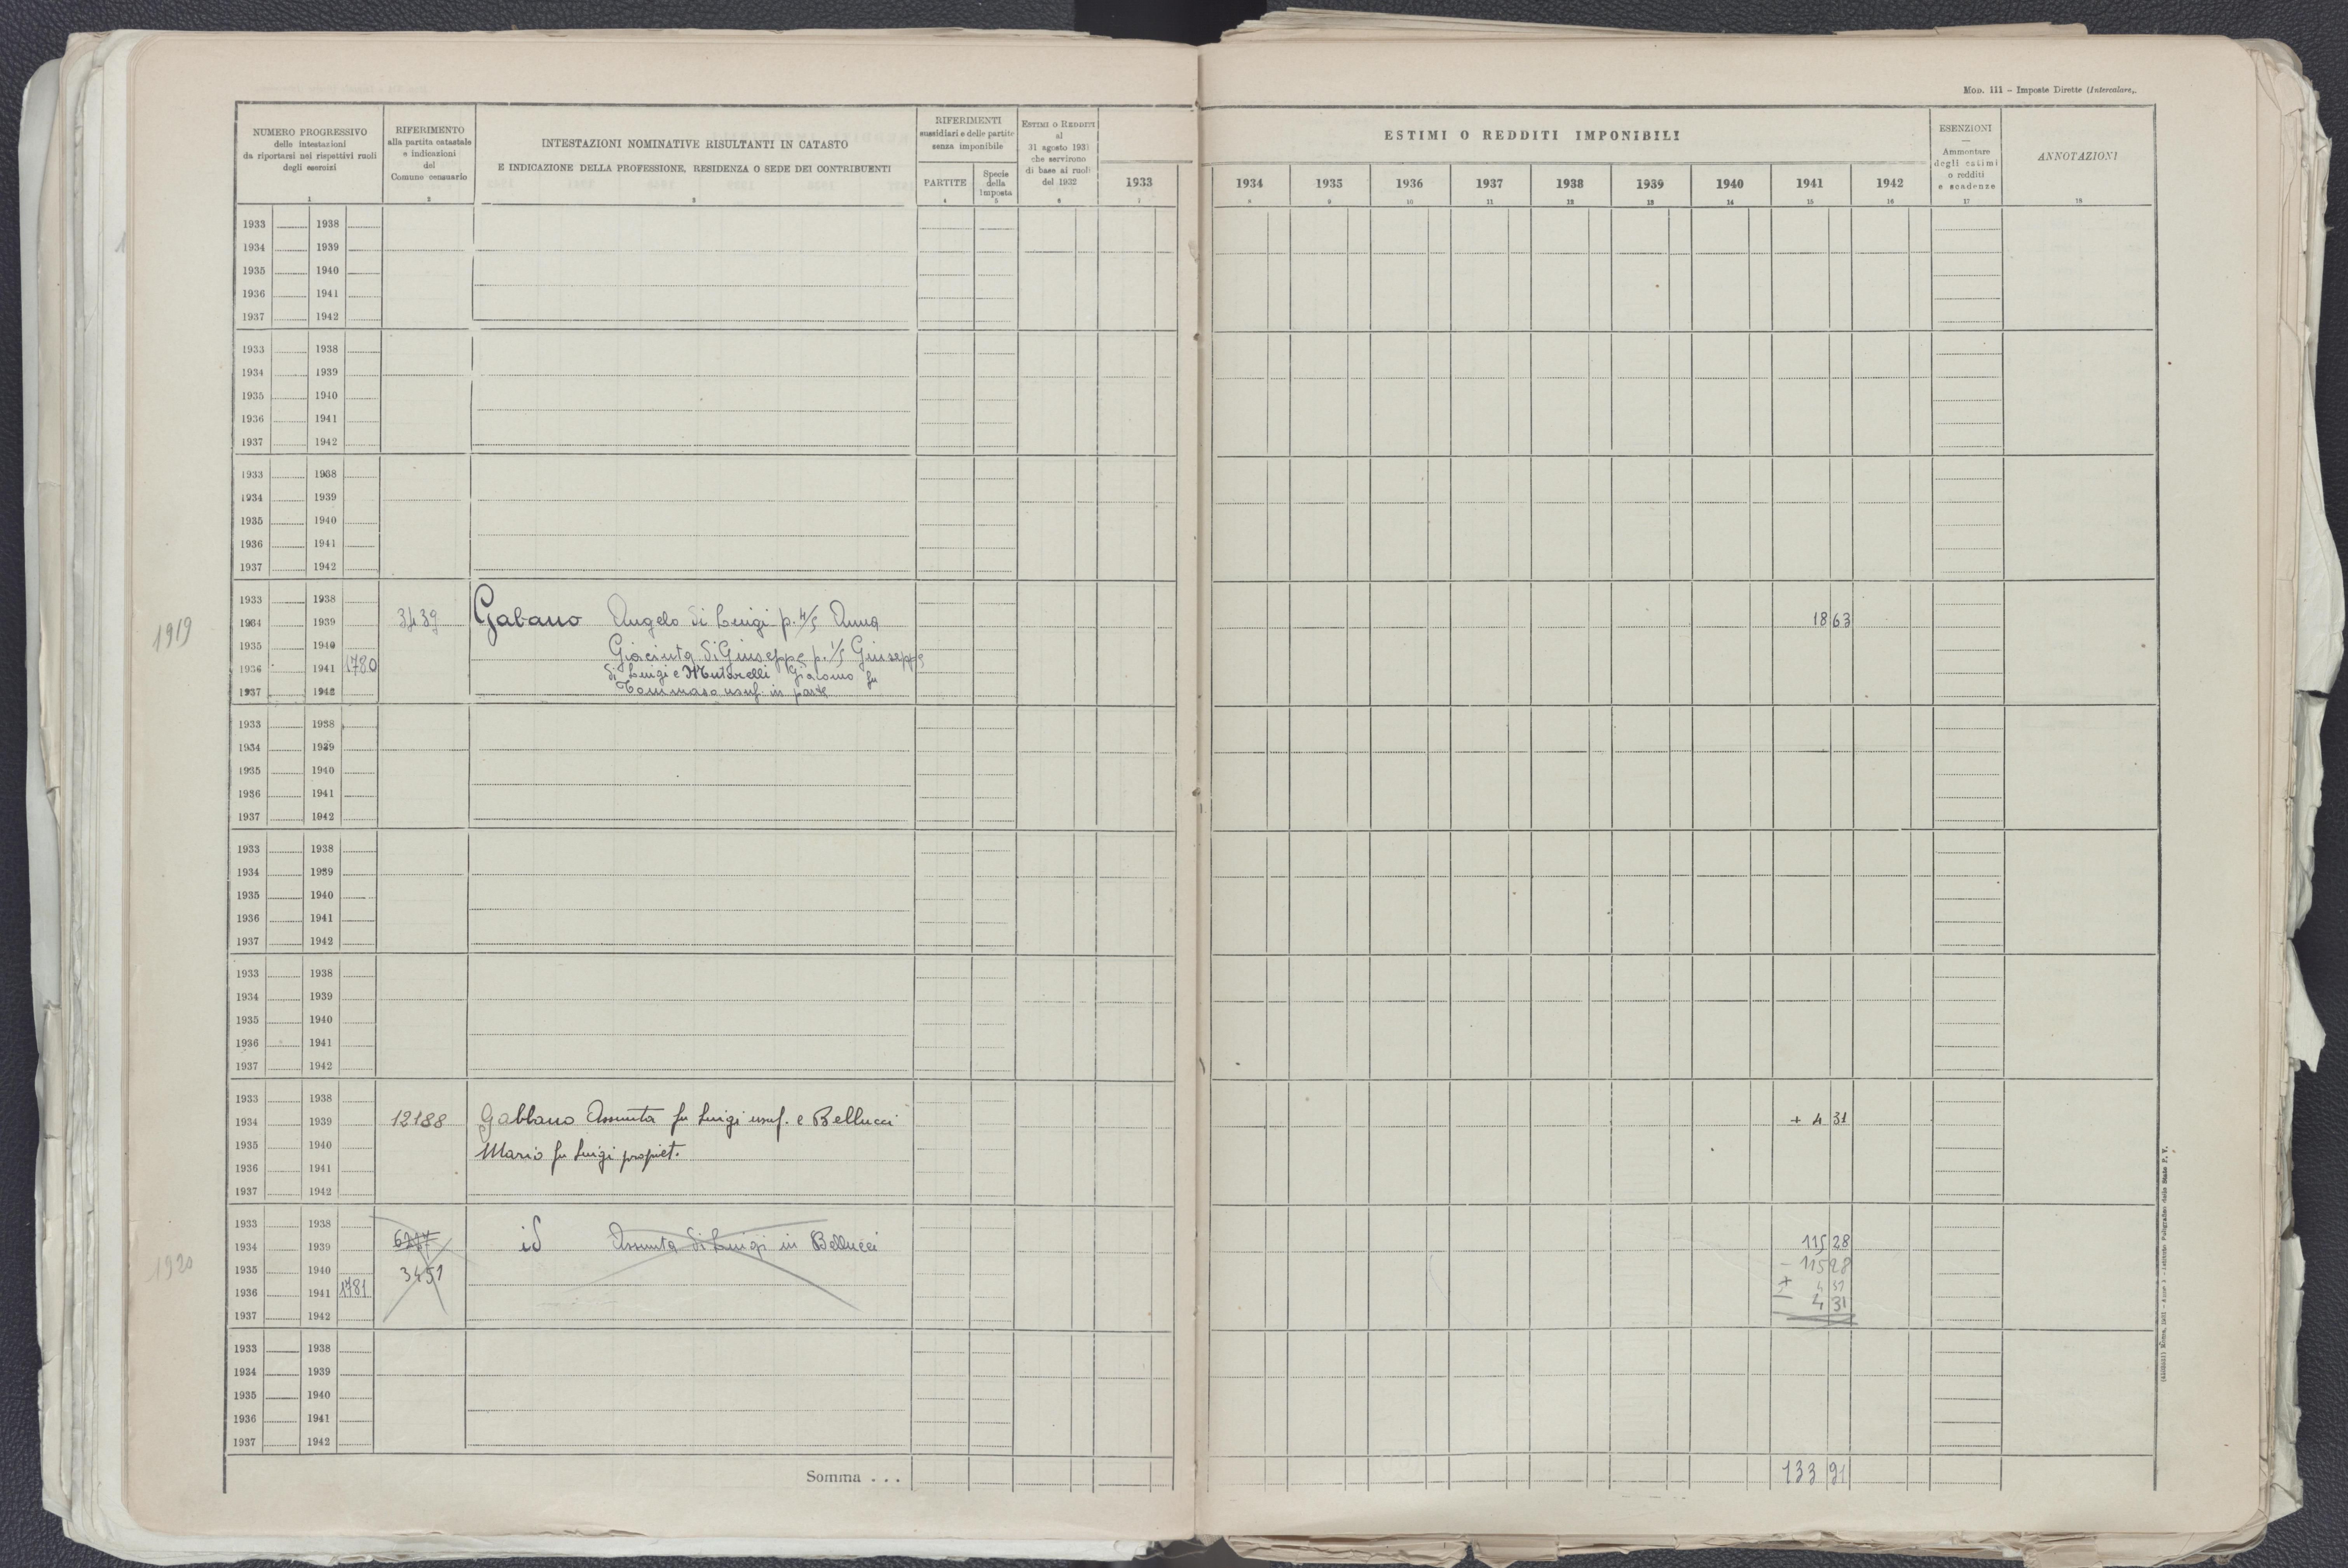 Mod. 111 – Imposte Dirette (Intercalare).
NUMERO PROGRESSIVO
delle intestazioni
da riportarsi nei rispettivi ruoli
degli esercizi
1
RIFERIMENTO
alla partita catastale
e indicazioni
del
Comune censuario
2
INTESTAZIONI NOMINATIVE RISULTANTI IN CATASTO
E INDICAZIONE DELLA PROFESSIONE, RESIDENZA O SEDE DEI CONTRIBUENTI
3
RIFERIMENTI
sussidiari e delle partite
senza imponibile
PARTITE
4
Specie
della
Imposta
5
ESTIMI O REDDITI
al
31 agosto 1931
che servirono
di base ai ruoli
del 1932
6
1933
7
ESTIMI O REDDITI IMPONIBILI
1934 1935 1936 1937 1938 1939 1940 1941 1942
8 9 10 11 12 13 14 15 16
ESENZIONI
—
Ammontare
degli estimi
o redditi
e scadenze
17
ANNOTAZIONI
18
1933 1938
1934 1939
1935 1940
1936 1941
1937 1942
1933 1938
1934 1939
1935 1940
1936 1941
1937 1942
1933 1938
1934 1939
1935 1940
1936 1941
1937 1942
1933 1938
1919 1934 1939 3439 Gabano Angelo di Luigi p. 4/5 Anna 18 63
1935 1940 Giacinta di Giuseppe p. 1/5 Giuseppe
1936 1941 1780 di Luigi e Giacomo fu
1937 1942 Tommaso usuf. in parte
1933 1938
1934 1939
1935 1940
1936 1941
1937 1942
1933 1938
1934 1939
1935 1940
1936 1941
1937 1942
1933 1938
1934 1939
1935 1940
1936 1941
1937 1942
1933 1938
1934 1939 12188 Gabbano Assunta fu Luigi usuf. e Bellucci + 4 31
1935 1940 Mario fu Luigi propriet.
1936 1941
1937 1942
1933 1938
1920 1934 1939 id Assunta di Luigi in Bellucci 115 28
1935 1940 3451 – 115 28
1936 1941 1781 + 4 31
1937 1942 4 31
1933 1938
1934 1939
1935 1940
1936 1941
1937 1942
Somma . . . 133 91